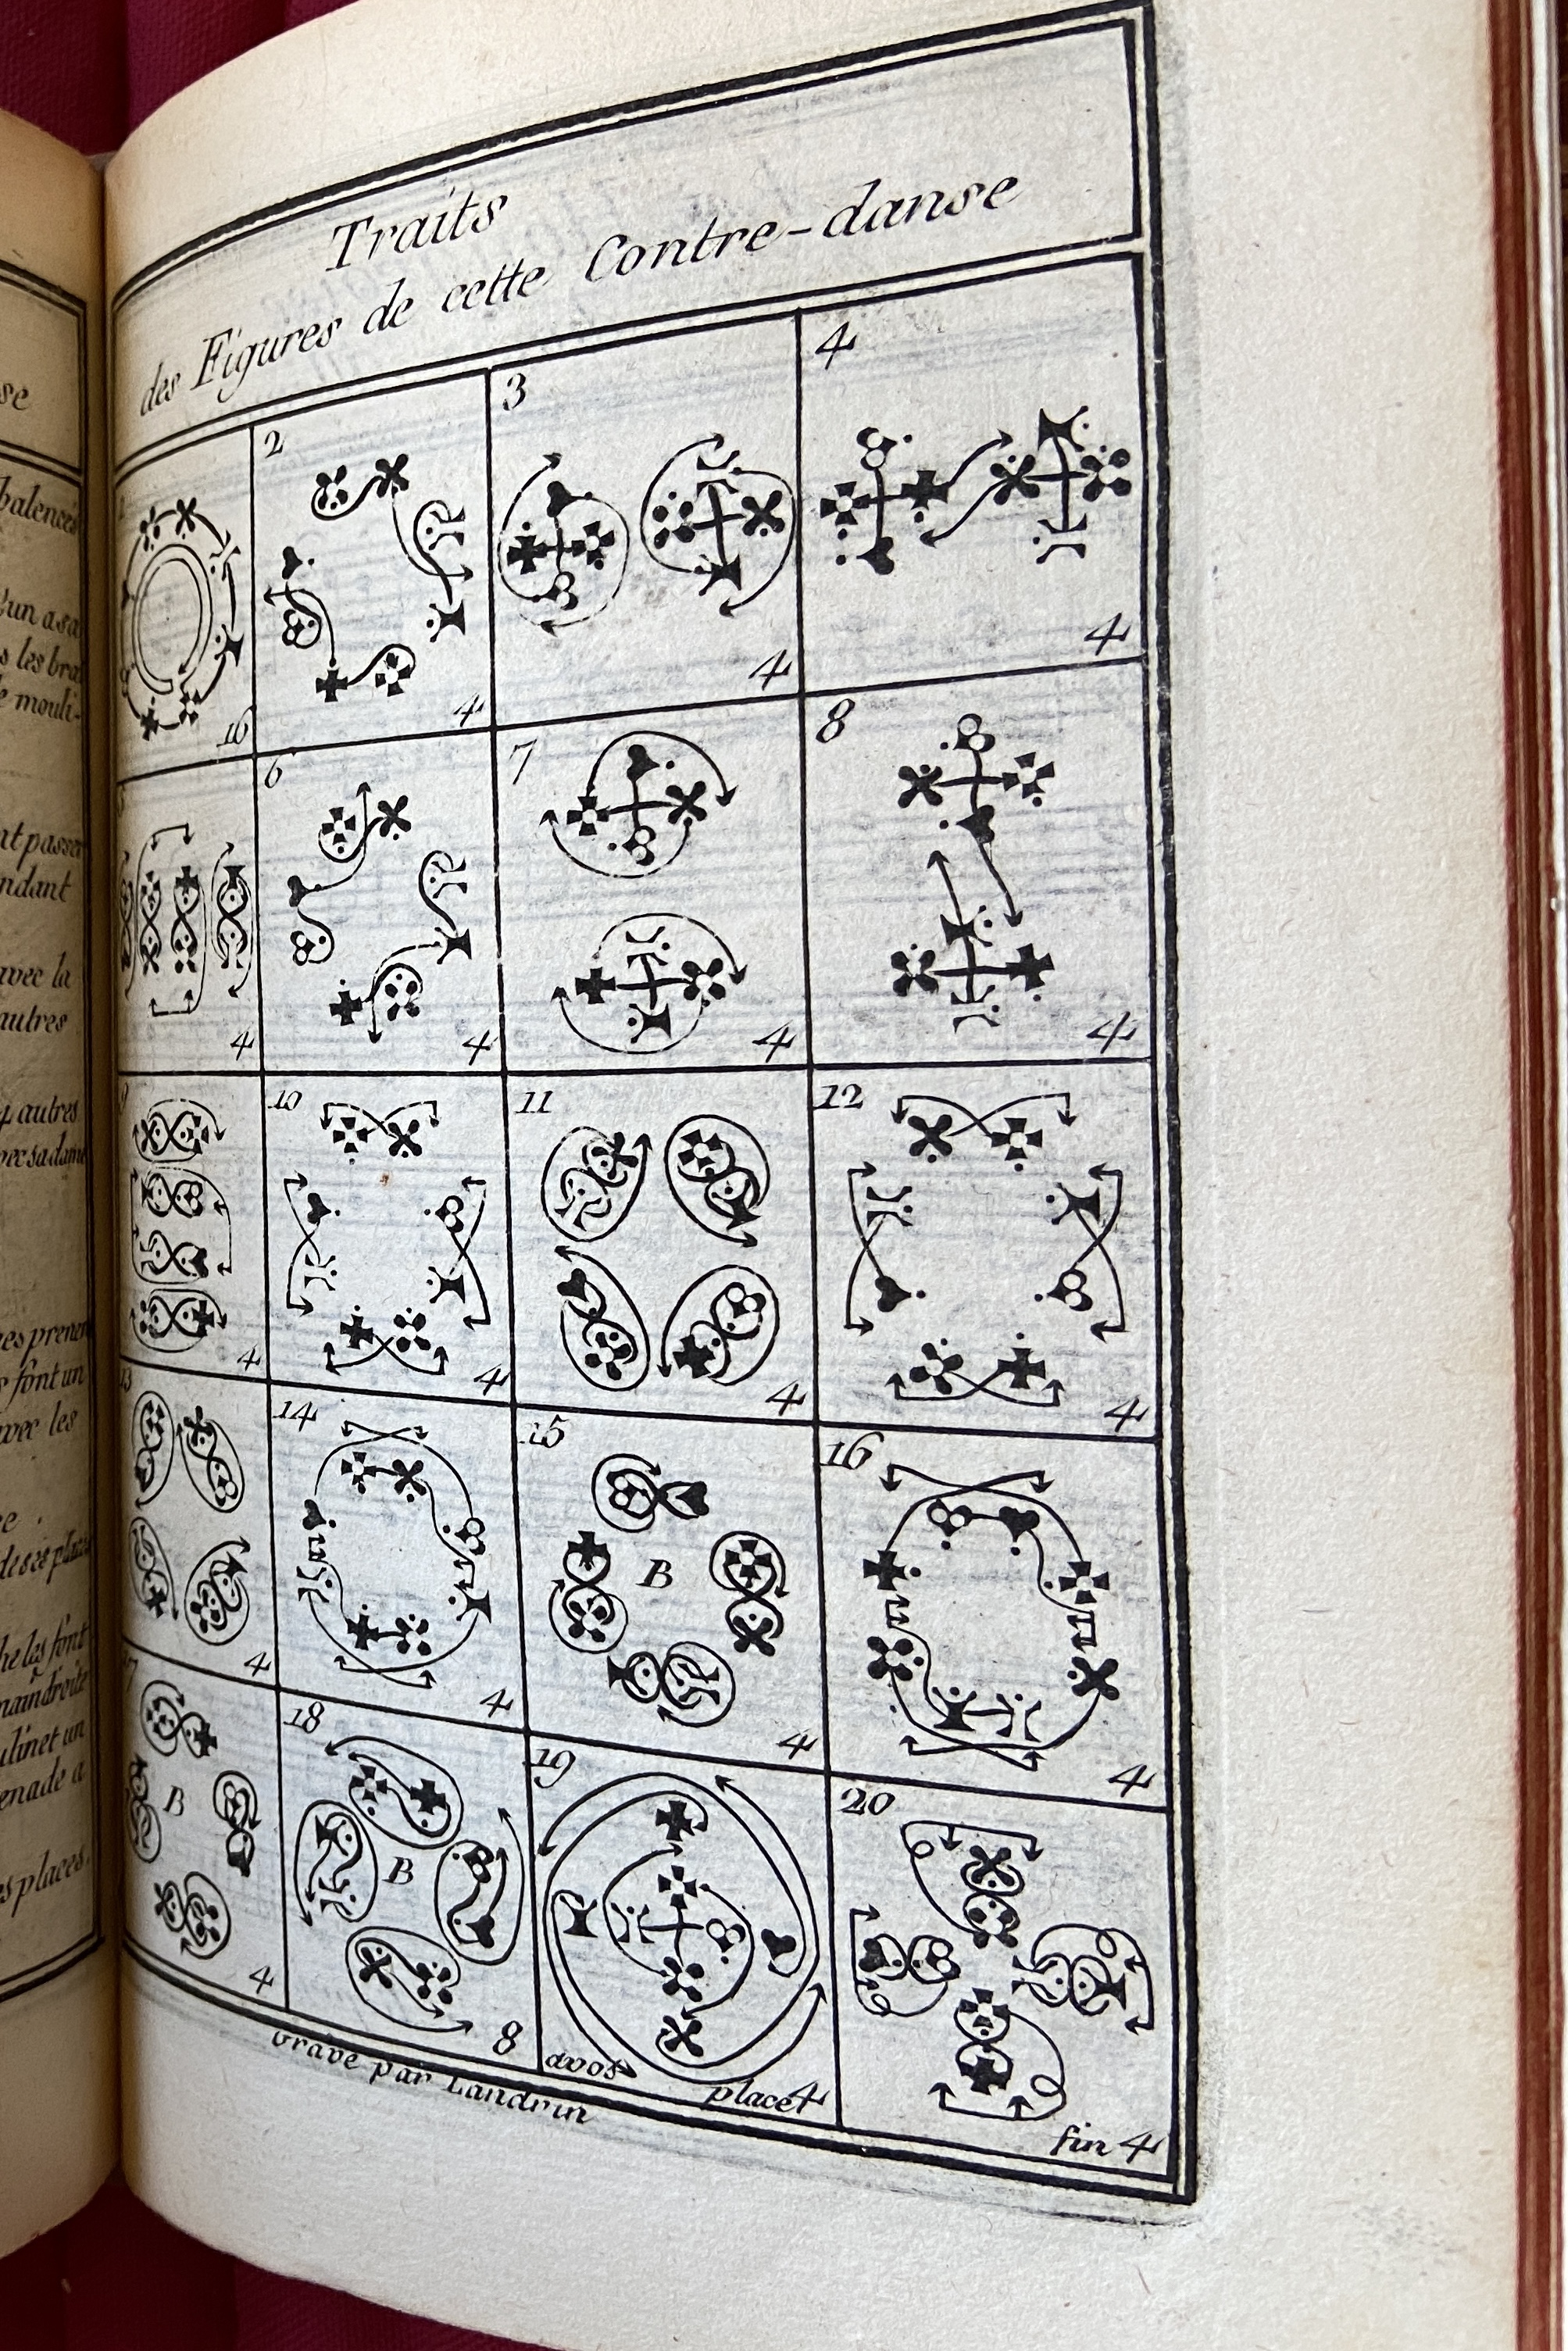 Traits
des Figures de cette Contre-danse
se
balencés
l'un a sa
s les bras
le mouli-
nt passer
ndant
avec la
autres
4 autres
vec sa dame
es prenen
s font un
avec les
ce.
he les font
main droite
ulinet un
enade a
es places.
2
3
4
16
4
4
4
6
7
8
4
4
4
4
9
10
11
12
4
4
4
4
13
14
15
16
B
4
4
4
4
17
18
19
20
B
B
4
8
avos place 4
fin 4
Gravé par Landrin